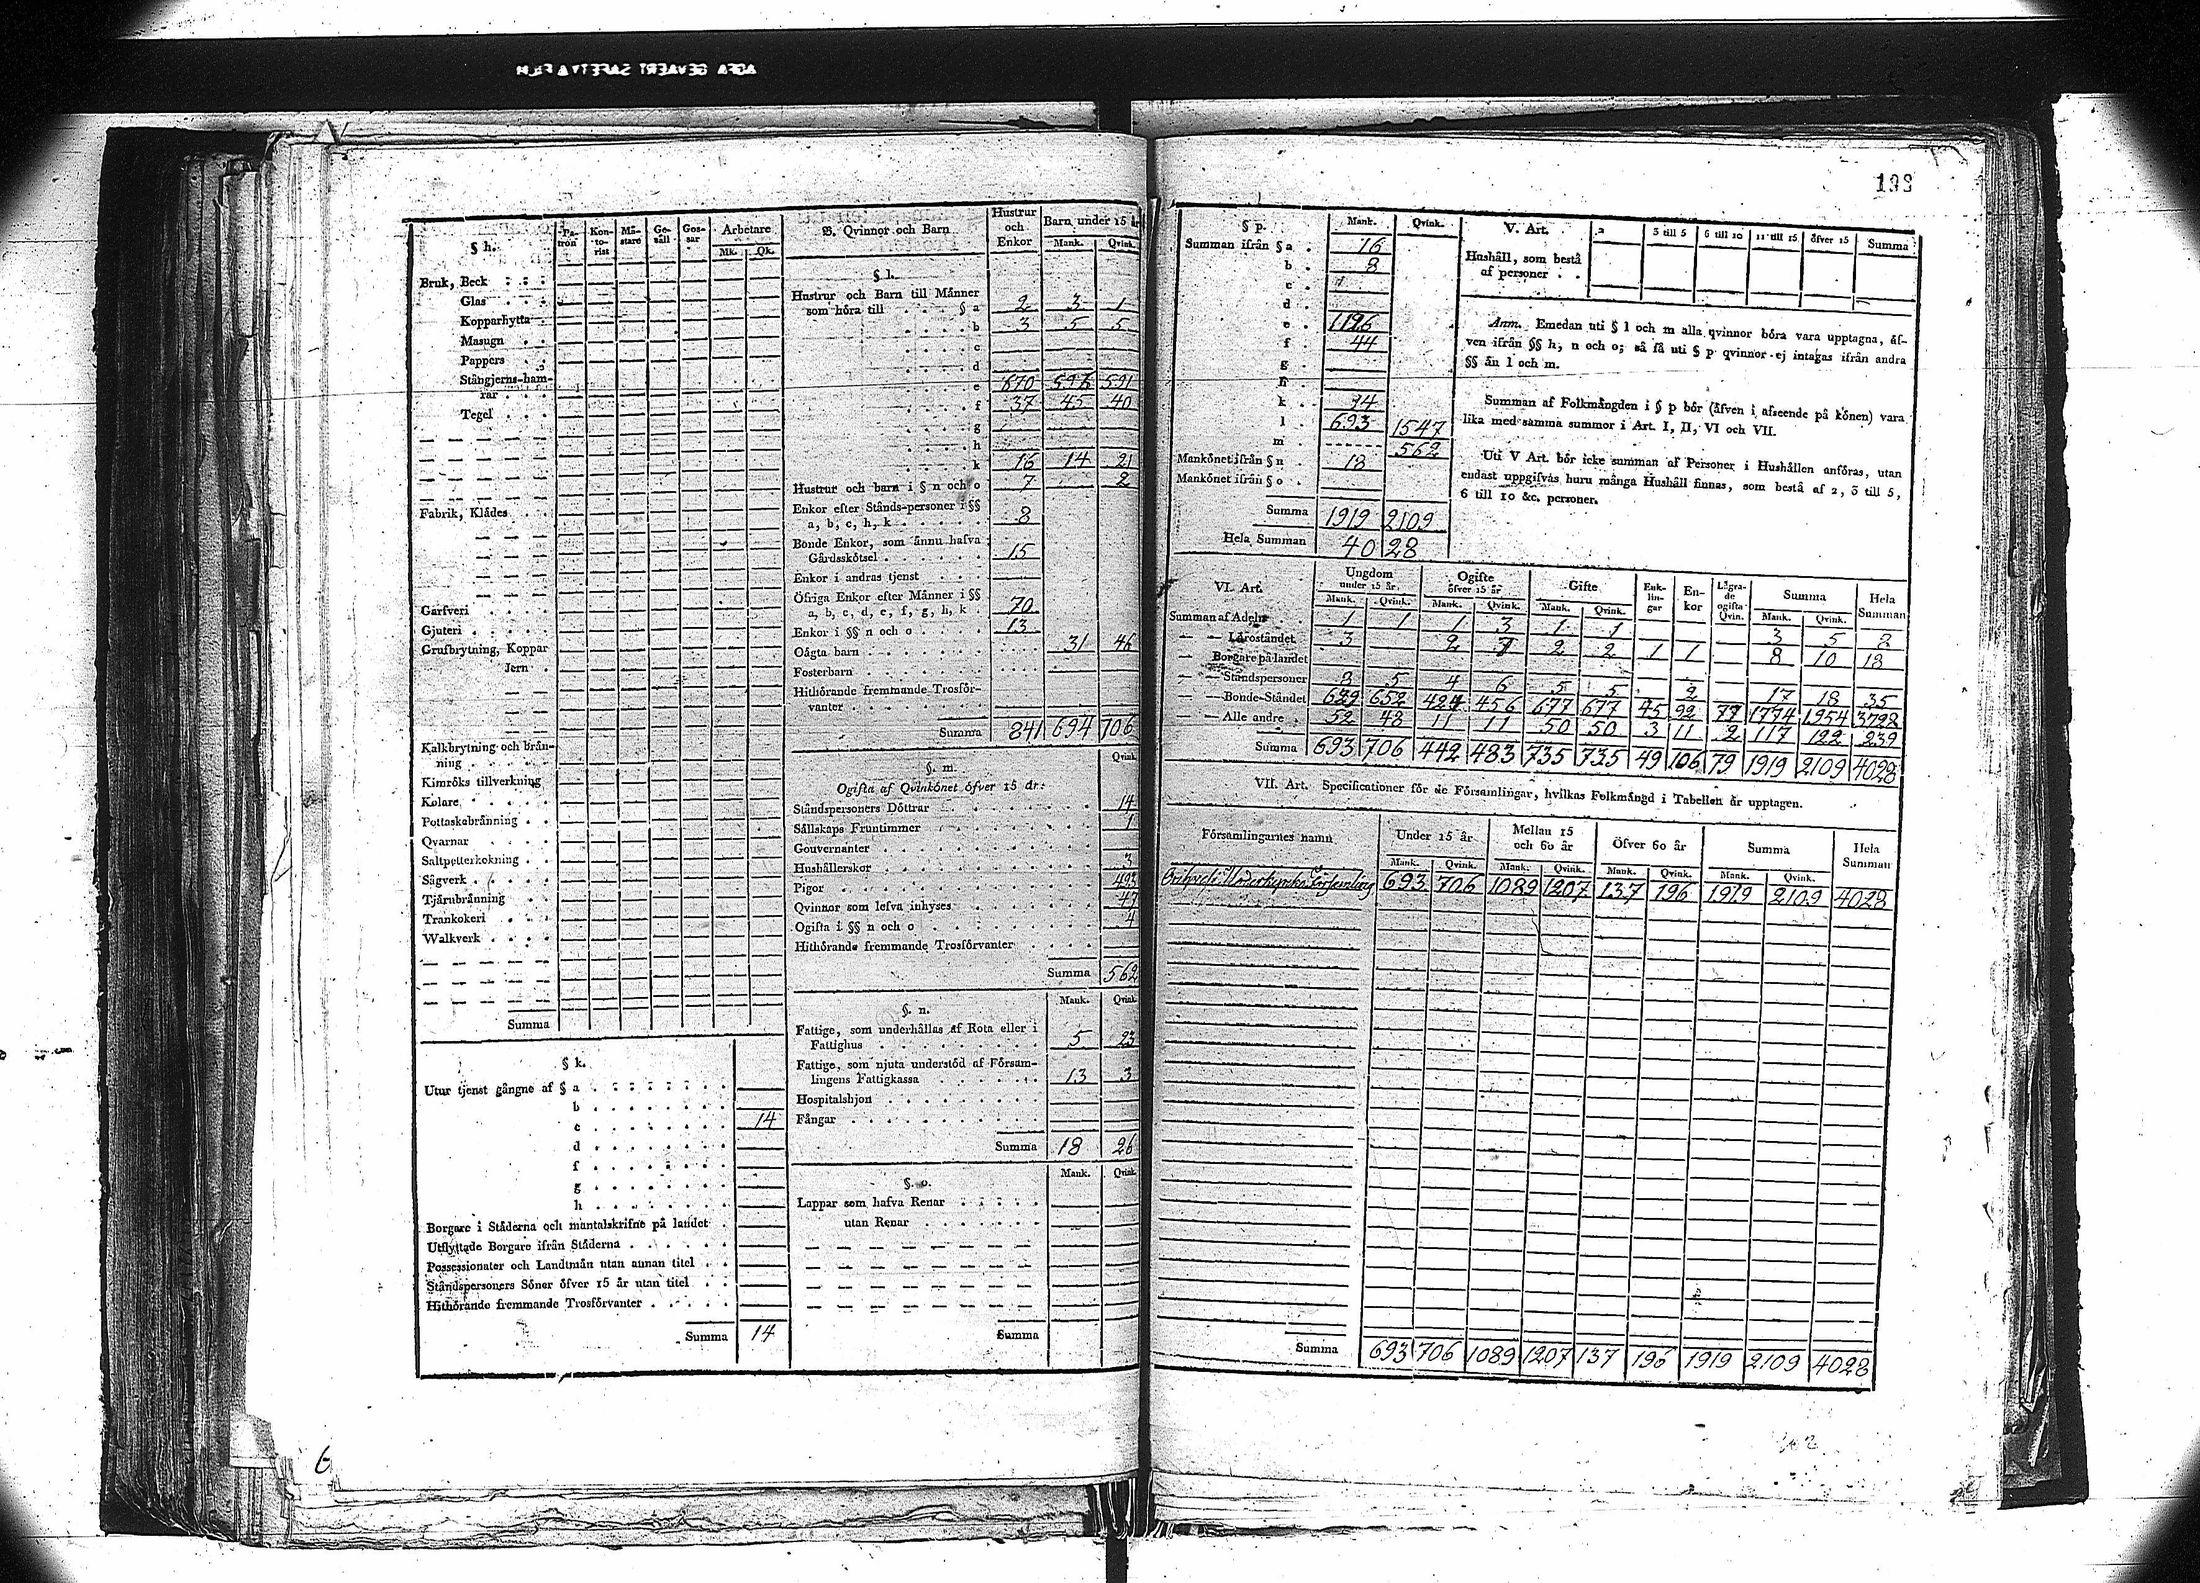 AGFA GEVAERT SAFETY FILM
§ h. Pa-tron Kon-to-rist Mä-stare Ge-säll Gos-sar Arbetare
Mk. Qk.
Bruk, Beck
Glas
Kopparhytta
Masugn
Pappers
Stångjerns-ham-
rar
Tegel
Fabrik, Klädes
Garfveri
Gjuteri
Grufbrytning, Koppar
Jern
Kalkbrytning och brän-
ning
Kimröks tillverkning
Kolare
Pottaskebränning
Qvarnar
Saltpetterkokning
Sågverk
Tjärubränning
Trankokeri
Walkverk
Summa
§ k.
Utur tjenst gångne af § a
b
c 14
d
f
g
h
Borgare i Städerna och mantalskrifne på landet
Utflyttade Borgare ifrån Städerna
Possessionater och Landtmän utan annan titel
Ståndspersoners Söner öfver 15 år utan titel
Hithörande fremmande Trosförvanter
Summa 14
B. Qvinnor och Barn Hustrur och Enkor Barn under 15 år
Mank. Qvink.
§ l.
Hustrur och Barn till Männer
som höra till § a 2 3 1
b 3 5 5
c
d
e 670 596 591
f 37 45 40
g
h
k 16 14 21
Hustrur och barn i § n och o 7 2
Enkor efter Stånds-personer i §§
a, b, c, h, k 8
Bonde Enkor, som ännu hafva
Gårdsskötsel 15
Enkor i andras tjenst
Öfriga Enkor efter Männer i §§
a, b, c, d, e, f, g, h, k 70
Enkor i §§ n och o 13
Oägta barn 31 46
Fosterbarn
Hithörande fremmande Trosför-
vanter
Summa 841 694 706
§. m. Qvink.
Ogifta af Qvinkönet öfver 15 år:
Ståndspersoners Döttrar 14
Sällskaps Fruntimmer 1
Gouvernanter
Hushållerskor 3
Pigor 493
Qvinnor som lefva inhyses 47
Ogifta i §§ n och o 4
Hithörande fremmande Trosförvanter
Summa 562
§. n. Mank. Qvink.
Fattige, som underhållas af Rota eller i
Fattighus 5 23
Fattige, som njuta understöd af Försam-
lingens Fattigkassa 13 3
Hospitalshjon
Fångar
Summa 18 26
§. o. Mank. Qvink.
Lappar som hafva Renar
utan Renar
Summa
6
§ p. Mank. Qvink.
Summan ifrån § a 16
b 8
c
d
e 1126
f 44
g
h
k 14
l 693 1547
m 562
Mankönet ifrån § n 18
Mankönet ifrån § o
Summa 1919 2109
Hela Summan 4028
V. Art. 2 3 till 5 6 till 10 11 till 15 öfver 15 Summa
Hushåll, som bestå
af personer
Anm. Emedan uti § l och m alla qvinnor böra vara upptagna, äf-
ven ifrån §§ h, n och o; så få uti § p qvinnor ej intagas ifrån andra
§§ än l och m.
Summan af Folkmängden i § p bör (äfven i afseende på könen) vara
lika med samma summor i Art. I, II, VI och VII.
Uti V Art. bör icke summan af Personer i Hushållen anföras, utan
endast uppgifvas huru många Hushåll finnas, som bestå af 2, 3 till 5,
6 till 10 &c. personer.
VI. Art. Ungdom under 15 år Ogifte öfver 15 år Gifte Enk-lin-gar En-kor Lägra-de ogifta Qvin. Summa Hela Summan
Mank. Qvink. Mank. Qvink. Mank. Qvink. Mank. Qvink.
Summan af Adeln 1 1 1 3 1 1 3 5 8
— — Läroståndet 3 2 7 2 2 1 1 8 10 18
— Borgare på landet
— — Ståndspersoner 8 5 4 6 5 5 2 17 18 35
— — Bonde-Ståndet 629 652 424 456 677 677 45 92 77 1774 1954 3728
— — Alle andre 52 48 11 11 50 50 3 11 2 117 122 239
Summa 693 706 442 483 735 735 49 106 79 1919 2109 4028
VII. Art. Specificationer för de Församlingar, hvilkas Folkmängd i Tabellen är upptagen.
Församlingarnes namn Under 15 år Mellan 15 och 60 år Öfver 60 år Summa Hela Summan
Mank. Qvink. Mank. Qvink. Mank. Qvink. Mank. Qvink.
Moderkyrko Församling 693 706 1089 1207 137 196 1919 2109 4028
Summa 693 706 1089 1207 137 196 1919 2109 4028